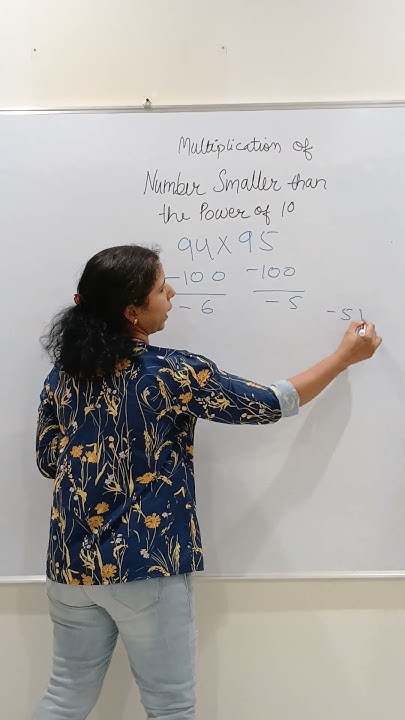 Multiplication of
Number Smaller than
the Power of 10
94 X 95
-100 -100
- 6 - 5
- 5